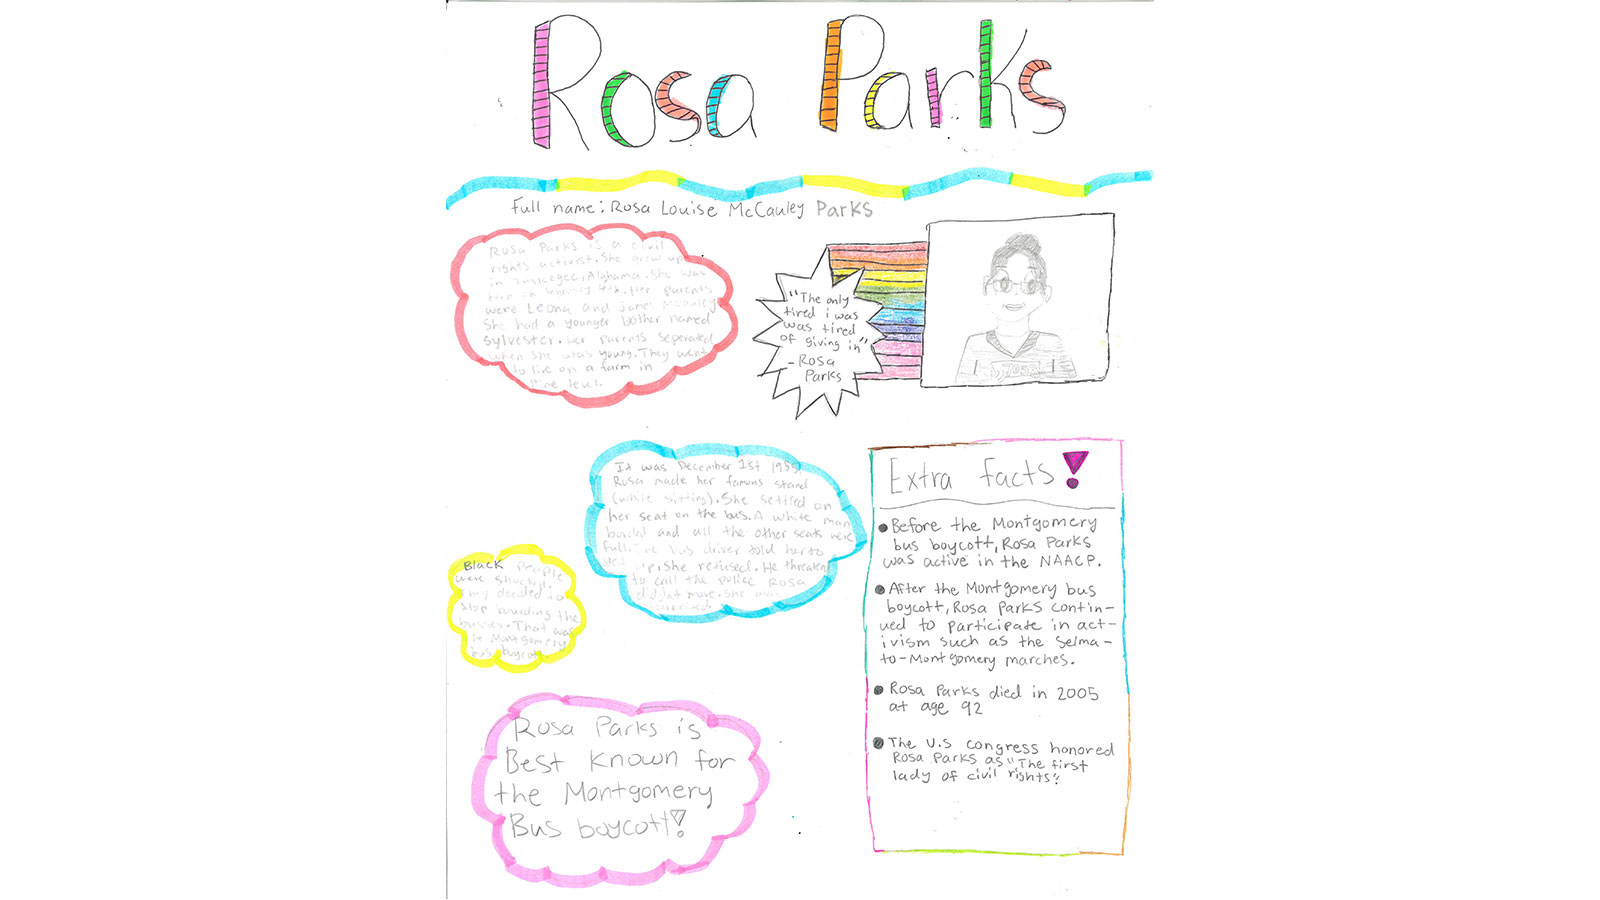 Rosa Parks
Full name: Rosa Louise McCauley Parks
Rosa Parks is a civil
rights activist. She grew up
in Tuskegee, Alabama. She was
born on 4th. Her parents
were Leona and James McCauley
She had a younger bother named
Sylvester. Her parents seperated
when she was young. They went
to live on a farm in
Pine level.
"The only
tired i was
was tired
of giving in"
- Rosa
Parks
It was December 1st 1955,
Rosa made her famous stand
(while sitting). She settled on
her seat on the bus. A white man
boarded and all the other seats were
full. The bus driver told her to
get up, she refused. He threatened
to call the police Rosa
didn't move. She was
Black People
were shocked.
They decided to
stop boarding the
busses. That was
te Montgomery
bus boycott
Rosa Parks is
Best Known for
the Montgomery
Bus boycott!
Extra facts!
• Before the Montgomery
bus boycott, Rosa Parks
was active in the NAACP.
• After the Montgomery bus
boycott, Rosa Parks contin-
ued to participate in act-
ivism such as the Selma-
to-Montgomery marches.
• Rosa Parks died in 2005
at age 92
• The U.S congress honored
Rosa Parks as "The first
lady of civil rights".